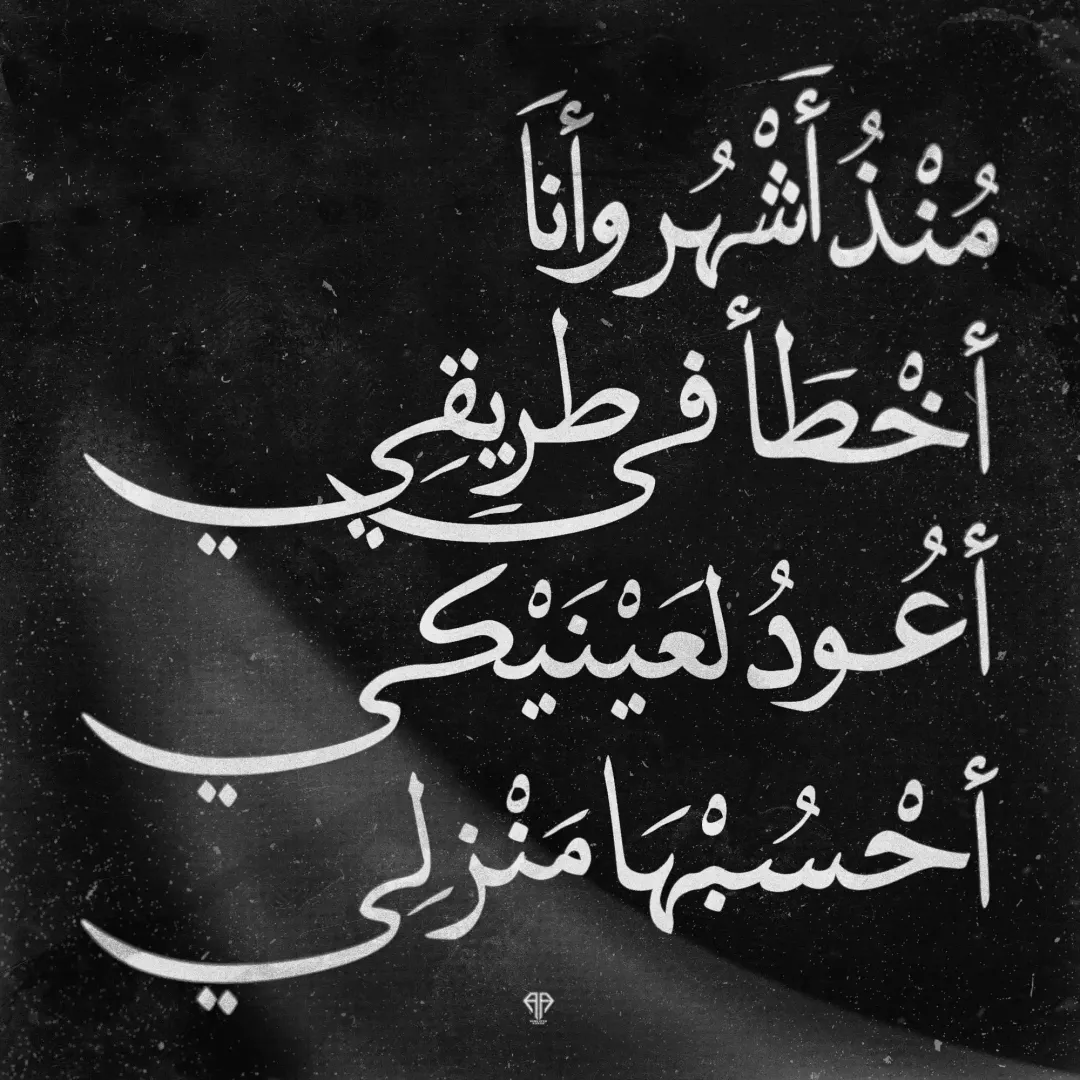 مُنْذُ أَشْهُر وأنَا
أخْطَأ في طرِيقِي
أعُودُ لعَيْنَيْكي
أحْسُبْهَا مَنْزلِي